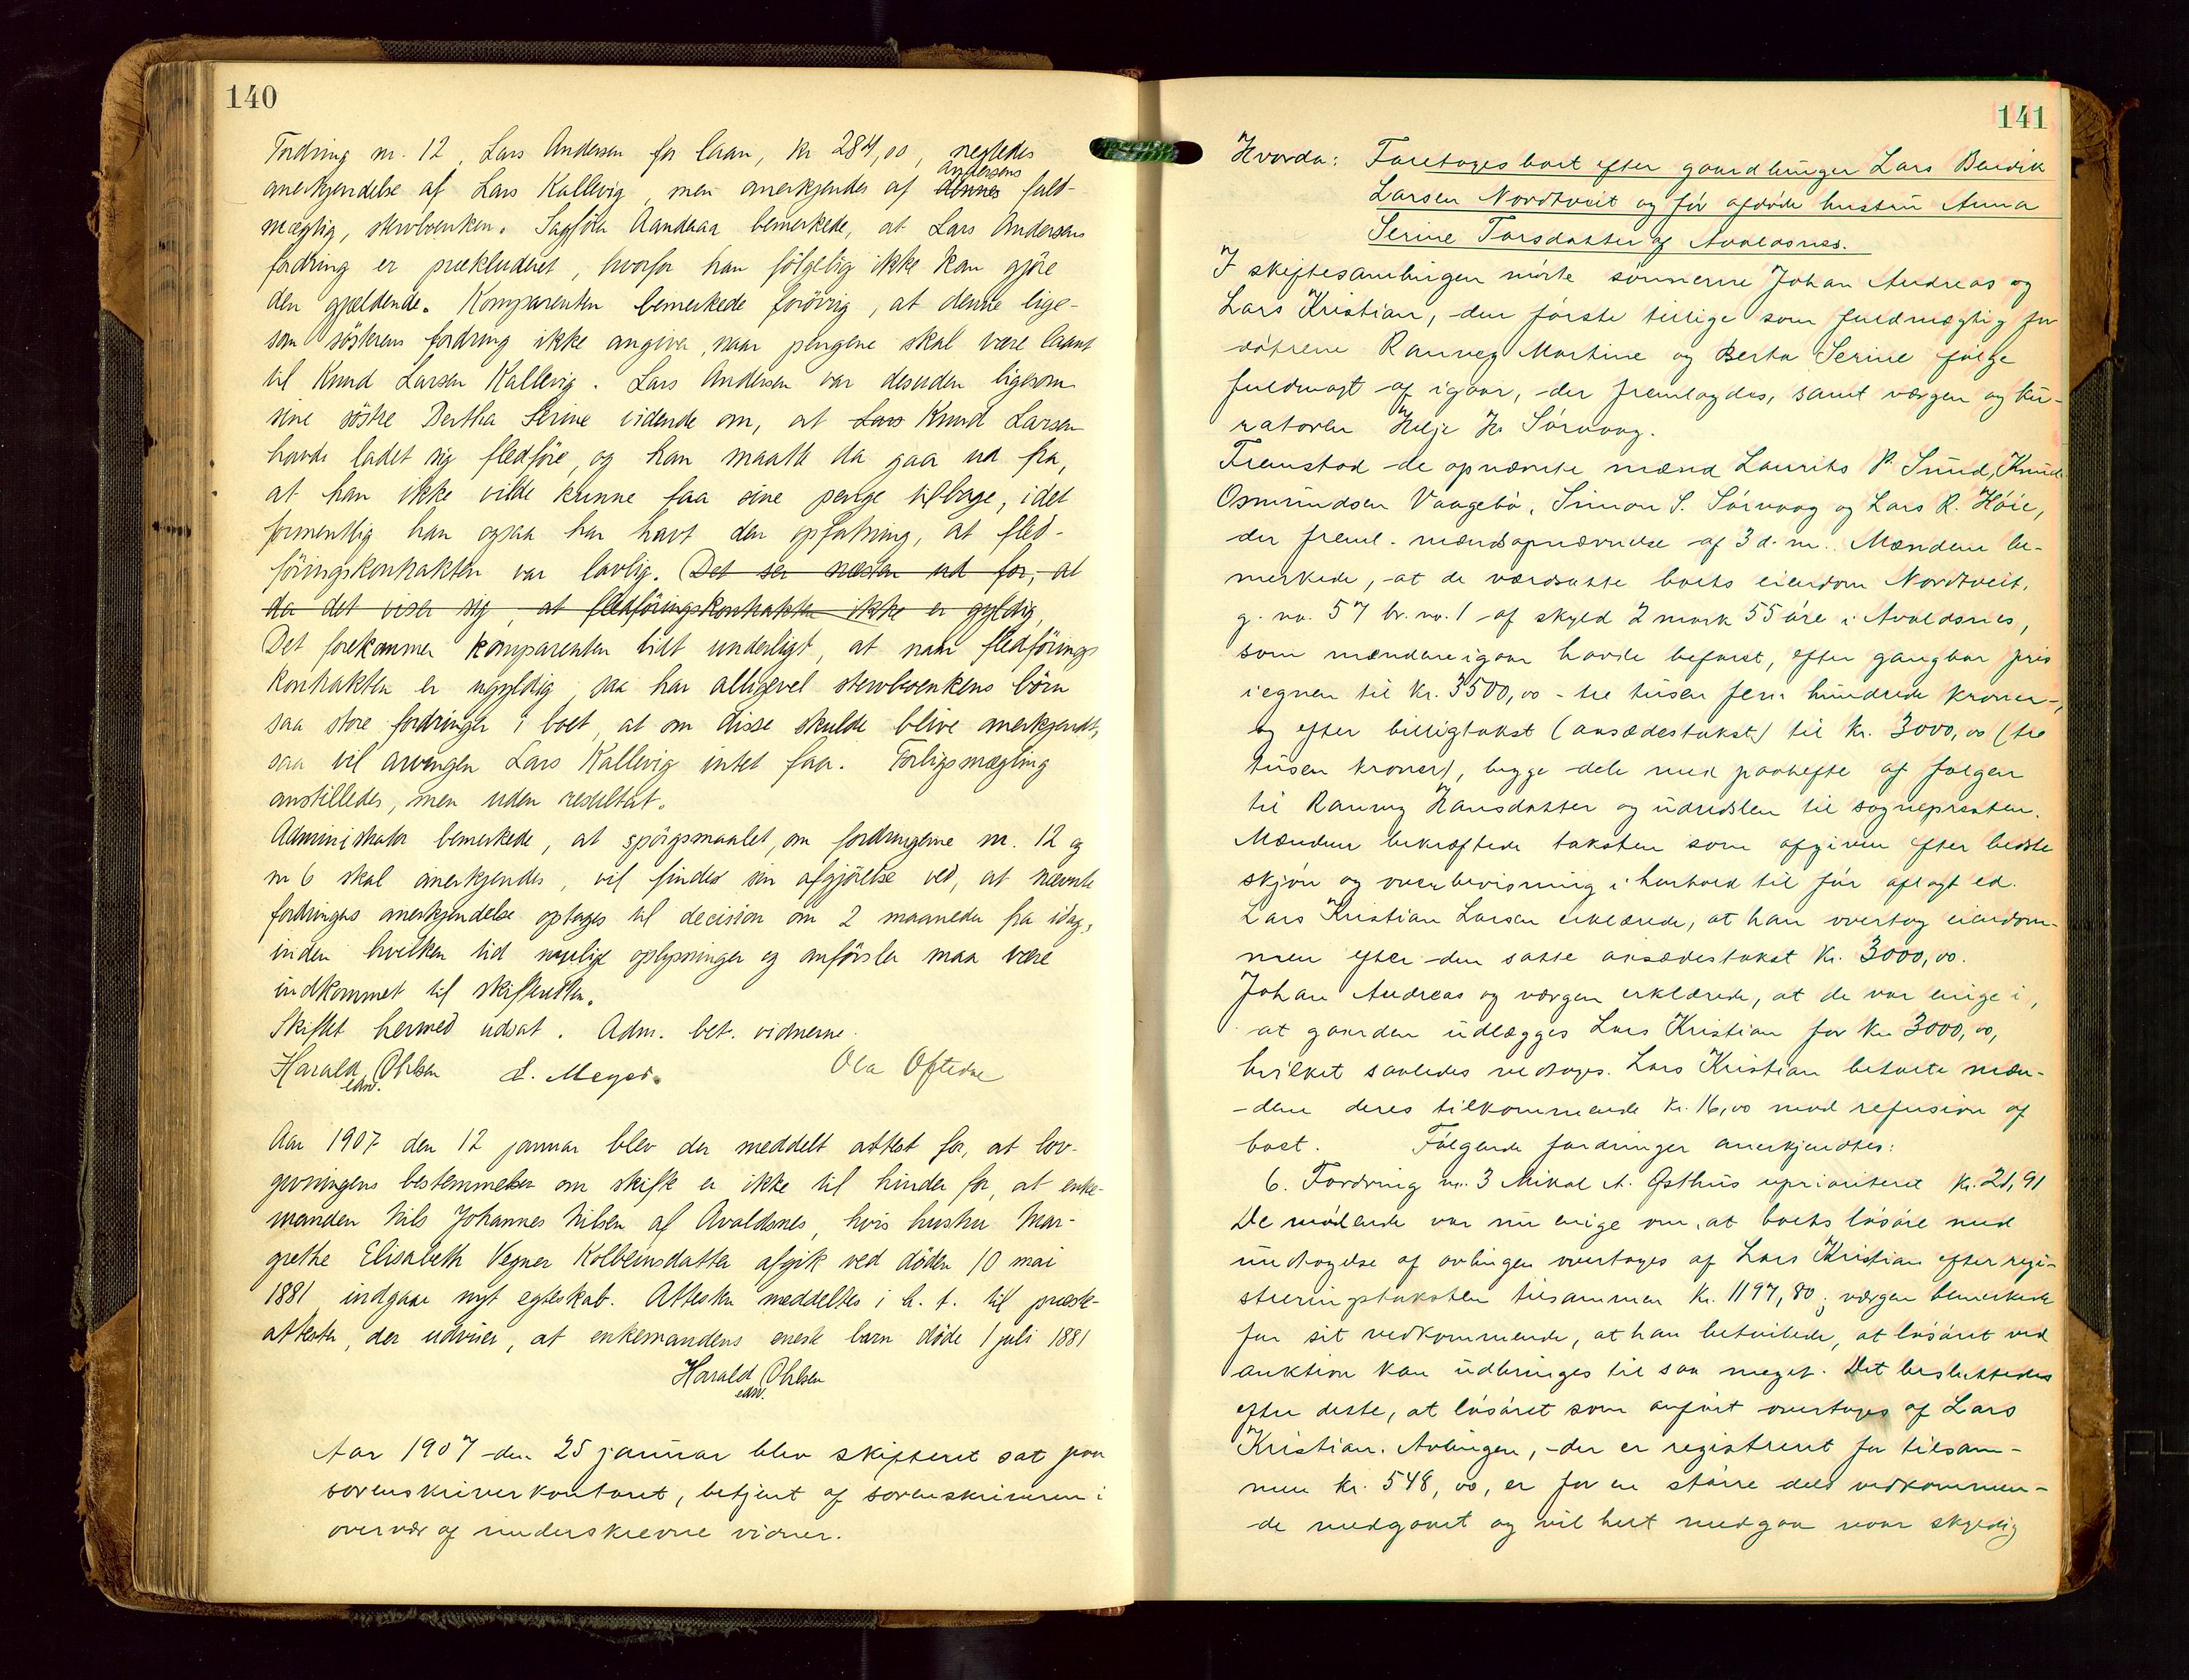 140
Fordring nr. 12, Lars Andersen for laan, kr 284,00, negtedes
anerkjendelse af Lars Kallevig, men anerkjendes af dennes Andersens fuld-
mægtig, stervboenken. Sagfører Aandaaa bemerkede, at Lars Andersens
fordring er prækluderet, hvorfor han følgelig ikke kan gjøre
den gjældende. Komparenten bemerkede forøvrig, at denne lige-
som søsterens fordring ikke angiver, naar pengene skal være laant
til Knud Larsen Kallevig. Lars Andersen var desuden ligesom
sine søstre Bertha Serine vidende om, at Lars Knud Larsen
havde ladet sig fledføre, og han maatte da gaa ud fra,
at han ikke vilde kunne faa sine penge tilbage, idet
formentlig han ogsaa har havt den opfatning, at fled-
føringskontrakten var lovlig. Det ser næsten ud for, at
da det viser sig, at fledføringskontrakten ikke er gyldig,
Det forekommer komparenten lidt underligt, at naar fledførings
kontrakten er ugyldig, saa har alligevel stervboenkens børn
saa store fordringer i boet, at om disse skulde blive anerkjendt,
saa vil arvingen Lars Kallevig intet faa. Forligsmægling
anstilledes, men uden resultat.
Administrator bemerkede, at spørgsmaalet, om fordringerne nr. 12 og
nr 6 skal anerkjendes, vil findes sin afgjørelse ved, at nævnte
fordringers anerkjendelse optages til decision om 2 maaneder fra idag,
inden hvilken tid mulige oplysninger og anførsler maa være
indkommet til skifteretten.
Skiftet hermed udsat. Adm. bet. vidnerne.
Harald Ohlsen
edsv.
L. Meyer.
Ola Oftedal
Aar 1907 den 12 januar blev der meddelt attest for, at lov-
givningens bestemmelser om skifte er ikke til hinder for, at enke-
manden Nils Johannes Nilsen af Avaldsnes, hvis hustru Mar-
grethe Elisabeth Vegner Kolbeinsdatter afgik ved døden 10 mai
1881, indgaar nyt egteskab. Attesten meddeltes i h. t. til præste-
attester, der udviser, at enkemandens eneste barn døde 1 juli 1881
Harald Ohlsen
edsv.
Aar 1907 den 25 januar blev skifteret sat paa
sorenskriverkontoret, betjent af sorenskriveren i
overvær af underskrevne vidner.
141
Hvorda: Foretoges boet efter gaardbruger Lars Bendik
Larsen Nordtveit og før afdøde hustru Anna
Serine Tarsdatter af Avaldsnes.
I skiftesamlingen møtte sønnerne Johan Andreas og
Lars Kristian, den første tillige som fuldmægtig for
døtrene Ranveg Martine og Berta Serine følge
fuldmagt af igaar, der fremlagdes, samt værgen og ku-
ratoren Helje H. Sørvaag.
Fremstod de opnævnte mænd Laurits P. Sund, Knud
Osmundsen Vaagebø, Simon S. Sørvaag og Lars R. Høie,
der freml. mændsopnævnelse af 3 d. m. Mændene be-
merkede, at de værdsatte boets eiendom Nordtveit,
g. no. 57 br. no. 1 af skyld 2 mark 55 øre i Avaldsnes,
som mændene igaar havde befaret, efter gangbar pris
i egnen til kr. 3500,00 - tre tusen fem hundrede kroner-,
og efter billigtakst (aasædestakst) til kr. 3000,00 (tre
tusen kroner), begge dele med paahefte af folgen
til Ranveg Hansdatter og udredslen til sognepresten.
Mændene bekræftede taksten som afgiven efter bedste
skjøn og overbevisning i henhold til før aflagt ed.
Lars Kristian Larsen erklærede, at han overtog eiendom-
men efter den satte aasædestakst kr. 3000,00.
Johan Andreas og værgen erklærede, at de var enige i,
at gaarden udlægges Lars Kristian for kr 3000,00,
hvilket saaledes vedtoges. Lars Kristian betalte mæn-
-dene deres tilkommende kr. 16,00 mod refusion af
boet. Følgende fordringer anerkjendtes:
6. Fordring nr. 3 Mikal A. Østhus uprioriteret kr. 21,91
De mødende var nu enige om, at boets løsøre med
undtagelse af avlingen overtages af Lars Kristian efter regi-
streringstaksten tilsammen kr. 1197,80; værgen bemerkede
for sit vedkommende, at han betvilede, at løsøret ved
auktion kan udbringes til saa meget. Det besluttedes
efter dette, at løsøret som anført overtages af Lars
Kristian. Avlingen, der er registreret for tilsam-
men kr. 548,00, er for en større dels vedkommen-
de medgaaet og vil helt medgaa naar skyldig